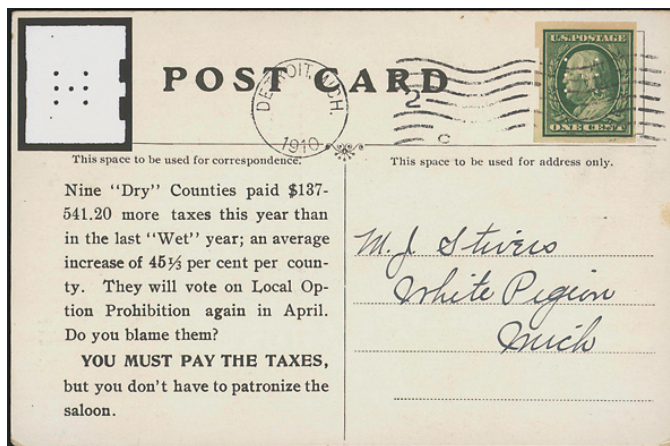 POST CARD
DETROIT, MICH.
1910
2
C
U.S. POSTAGE
ONE CENT
This space to be used for correspondence.
This space to be used for address only.
Nine "Dry" Counties paid $137-
541.20 more taxes this year than
in the last "Wet" year; an average
increase of 45⅓ per cent per coun-
ty. They will vote on Local Op-
tion Prohibition again in April.
Do you blame them?
YOU MUST PAY THE TAXES,
but you don't have to patronize the
saloon.
M. J. Stivers
White Pigeon
Mich